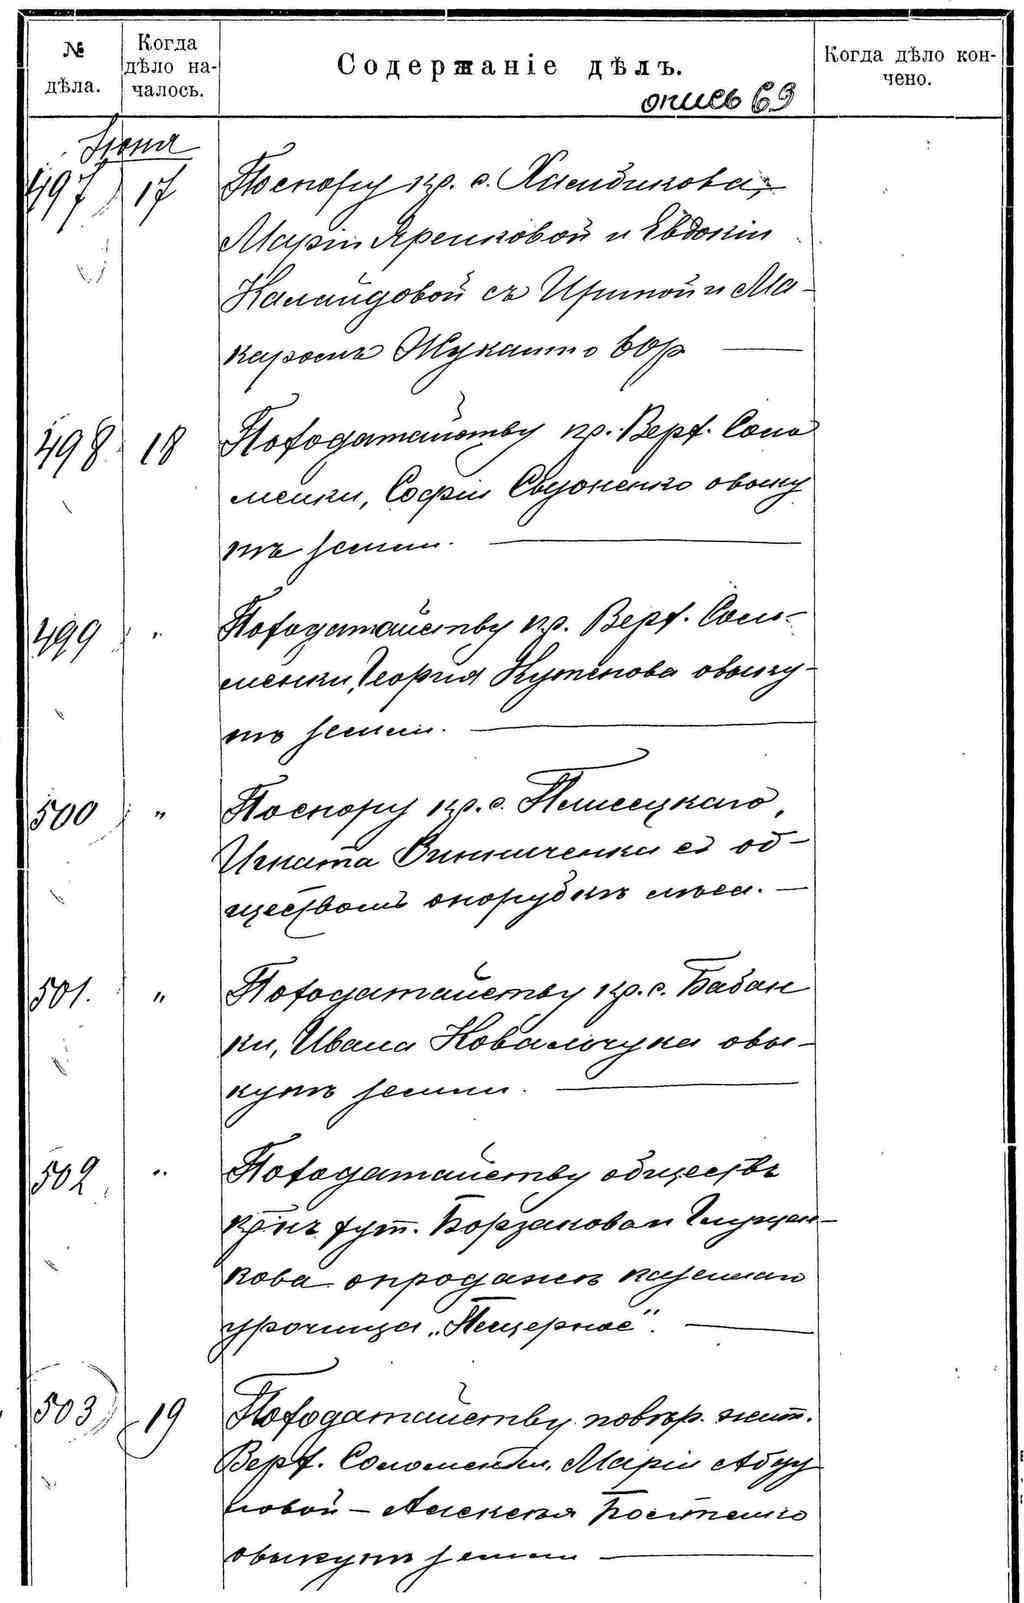 № дѣла.
Когда дѣло на-
чалось.
Содержаніе дѣлъ.
Когда дѣло кон-
чено.
опись 69
Іюня
497 17 По спору кр. с.
Маріи Яренковой и Евдокіи
Калайдовой съ Ириной и Ма-
каромъ Жуками о
498 18 По ходатайству кр. Верх. Соло
менки, Софіи о выку
пѣ земли.
499 " По ходатайству кр. Верх. Соло-
менки, Георгія Кутепова о выку-
пѣ земли.
500 " По спору кр. с. Плисецкаго,
Игната Винниченки съ об-
ществомъ о порубкѣ лѣса.
501. " По ходатайству кр. с. Бабан
ки, Ивана Ковальчука о вы-
купѣ земли.
502 " По ходатайству обществъ
кр-нъ хут. Борзакова и Глущен-
кова о продажѣ казенная
урочища „Пещерное".
503 19 По ходатайству повѣр. жит.
Верх. Соломенки, Маріи Абду
ловой – Алексѣя Костенко
о выкупѣ земли